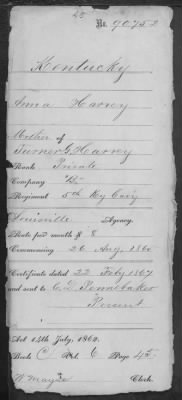 No. 90752
Kentucky
Anna Harvey
Mother of
Turner G. Harvey
Rank Private
Company
Regiment 5th Ky Cavy
Louisville Agency.
Rate per month $ 8
Commencing 26 Aug. 186
Certificate dated 22 Feby 1867
and sent to C. D. Pennebaker
Present
Act 14th July, 1862.
Book C Vol. 6 Page 45
Clerk.